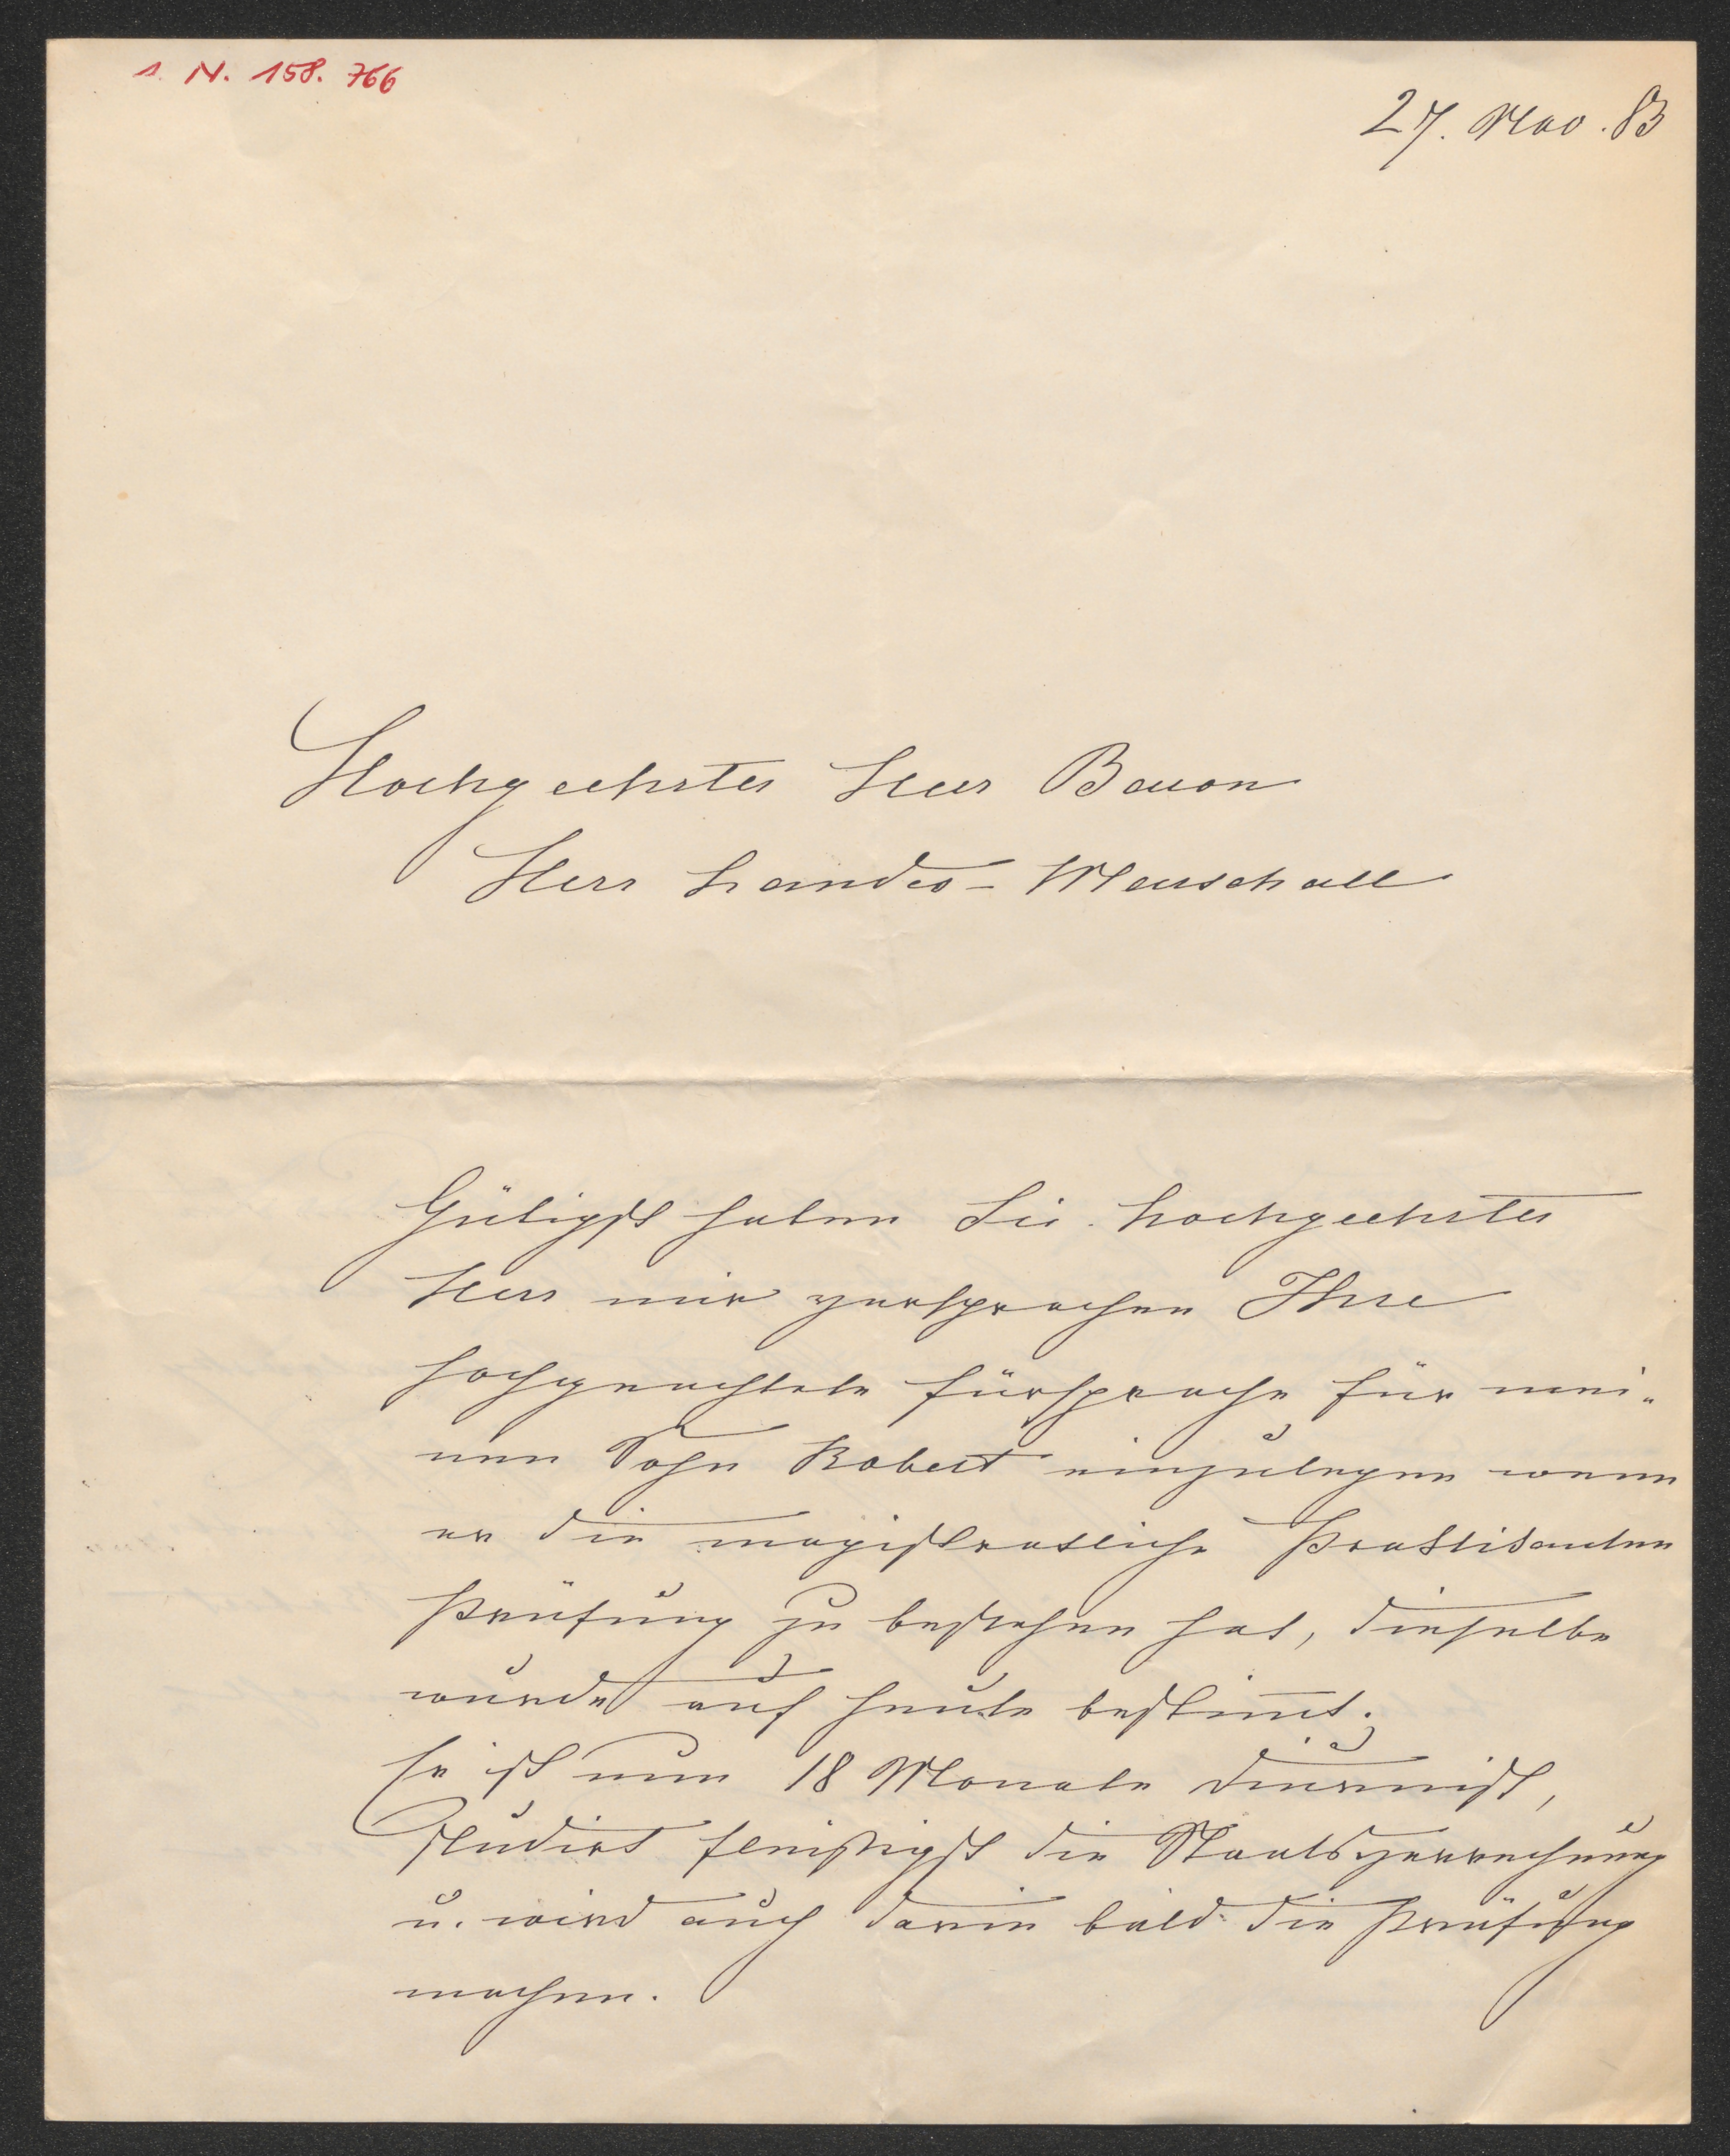 I. N. 158.766
27. Nov. 83
Hochgeehrter Herr Baron
Herr Landes-Marschall
Gütigst haben Sie hochgeehrter
Herr mir versprochen Ihre
hochgeachtete Fürsprache für mei-
nen Sohn Robert einzulegen wenn
er die magistratliche Praktikanten
Prüfung zu bestehen hat, dieselbe
wurde auf heute bestimt.
Er ist nun 18 Monate Diurnist,
studirt fleißigst die Staatsverrechnung
u. wird auch darin bald die Prüfung
machen.